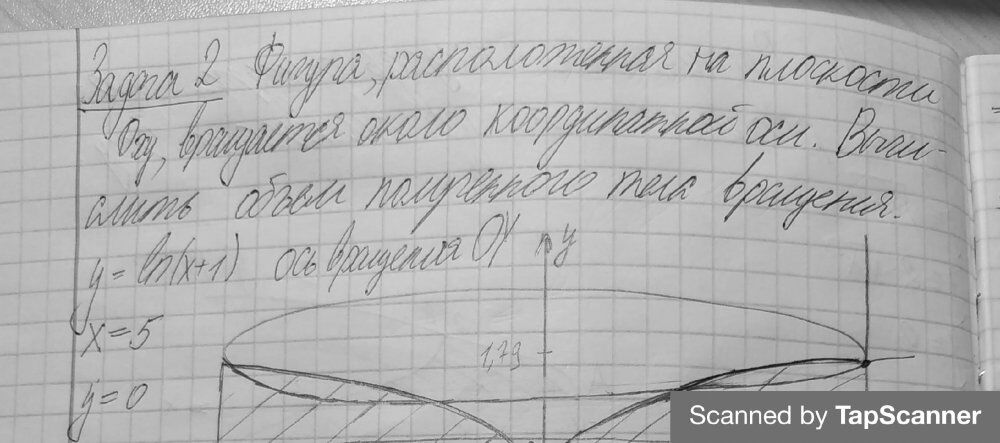 Задача 2 Фигура, расположенная на плоскости
Oxy, вращается около координатной оси. Вычи-
слить объем полученного тела вращения.
y = ln(x+1) ось вращения OY
y
x = 5
1,79
y = 0
Scanned by TapScanner